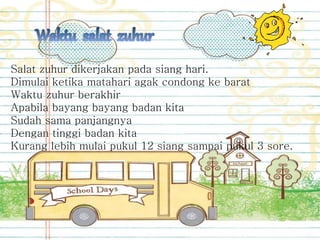 Waktu salat zuhur
Salat zuhur dikerjakan pada siang hari.
Dimulai ketika matahari agak condong ke barat
Waktu zuhur berakhir
Apabila bayang bayang badan kita
Sudah sama panjangnya
Dengan tinggi badan kita
Kurang lebih mulai pukul 12 siang sampai pukul 3 sore.
School Days